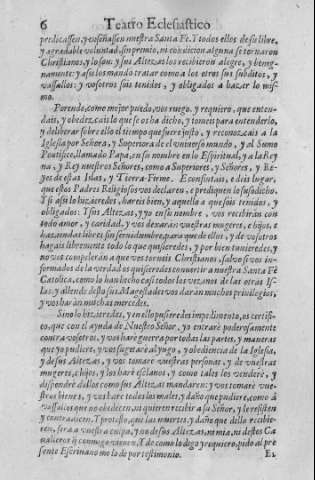 6 Teatro Eclesiastico
predicassen, y enseñassen nuestra Santa Fe. Y todos ellos de su libre,
y agradable voluntad, sin premio, ni condicion alguna se tornaron
Christianos, y lo son: y sus Altezas los recibieron alegre, y benig-
namente: y assi los mandò tratar como a los otros sus subditos, y
vassallos: y vosotros sois tenidos, y obligados a hazer lo mis-
mo.
Por ende, como mejor puedo, vos ruego, y requiero, que enten-
dais, y obedezcais lo que se os ha dicho, y tomeis para entenderlo,
y deliberar sobre ello el tiempo que fuere justo, y reconozcais a la
Iglesia por Señora, y Superiora de el universo mundo, y al Sumo
Pontifice, llamado Papa, en su nombre en lo Espiritual, y a la Rey
na, y Rey nuestros Señores, como a Superiores, y Señores, y Re-
yes de estas Islas, y Tierra-Firme. E consintais, e deis lugar,
que estos Padres Religiosos vos declaren, e prediquen lo susodicho.
Y si assi lo hizieredes, hareis bien, y aquello a que sois tenidos, y
obligados: Y sus Altezas, y yo en su nombre, vos recibiràn con
todo amor, y caridad, y vos dexaràn vuestras mugeres, e hijos, e
haziendas libres, sin servidumbre, para que de ellos, y de vosotros
hagais libremente todo lo que quisieredes, y por bien tuvieredes, y
no vos compeleràn a que vos torneis Christianos, salvo si vos in-
formados de la verdad os quisieredes convertir a nuestra Santa Fè
Catolica, como lo han hecho casi todos los vezinos de las otras Is-
las: y allende desto sus Magestades vos daràn muchos privilegios,
y vos haràn muchas mercedes.
Si no lo hizieredes, y en ello pusieredes impedimento, os certifi-
co, que con el ayuda de Nuestro Señor, yo entrarè poderosamente
contra vosotros, y vos harè guerra por todas las partes, y maneras
que yo pudiere, y vos sugetarè al yugo, y obediencia de la Iglesia,
y de sus Altezas, y vos tomarè vuestras personas, y de vuestras
mugeres, e hijos, y los harè esclavos, y como tales los venderè, y
dispondrè dellos como sus Altezas mandaren: y vos tomarè vues-
tros bienes, y vos harè todos los males, y daño que pudiere, como à
vassallos que no obedecen, ni quieren recibir a su Señor, y le resisten
y contradicen. Y protesto, que las muertes, y daño que dello recibie-
ren, serà a vuestra culpa, y no de sus Altezas, ni mia, ni destos Ca
valleros que conmigo vienen. Y de como lo digo y requiero, pido al pre
sente Escrivano me lo dè por testimonio.
El